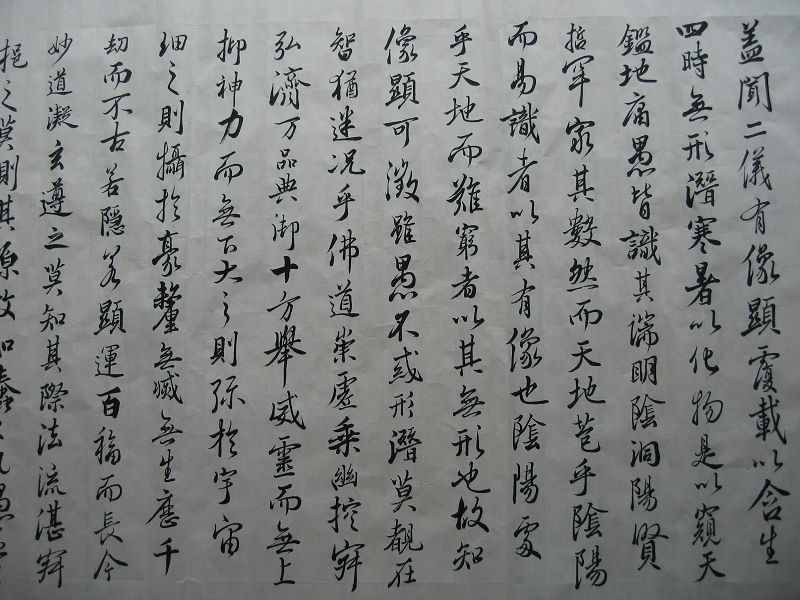 蓋聞二儀有像顯覆載以含生
四時無形潛寒暑以化物是以窺天
鑑地庸愚皆識其端明陰洞陽賢
哲罕窮其數然而天地苞乎陰陽
而易識者以其有像也陰陽處
乎天地而難窮者以其無形也故知
像顯可徵雖愚不惑形潛莫覩在
智猶迷况乎佛道崇虛乘幽控寂
弘濟万品典御十方舉威靈而無上
抑神力而無下大之則彌於宇宙
細之則攝於豪釐無滅無生歷千
劫而不古若隱若顯運百福而長今
妙道凝玄遵之莫知其際法流湛寂
挹之莫測其源故知蠢蠢凡愚